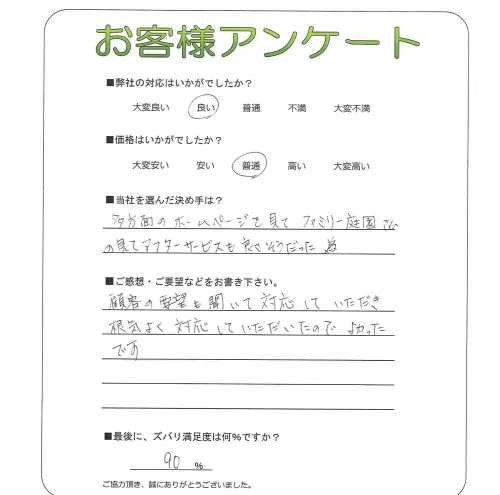 お客様アンケート
■弊社の対応はいかがでしたか？
大変良い 良い 普通 不満 大変不満
■価格はいかがでしたか？
大変安い 安い 普通 高い 大変高い
■当社を選んだ決め手は？
多方面のホームページを見て ファミリー庭園さん
の見てアフターサービスも良さそうだった 為
■ご感想・ご要望などをお書き下さい。
顧客の要望も聞いて対応していただき
根気よく対応していただいたので よかった
です
■最後に、ズバリ満足度は何%ですか？
90 %
ご協力頂き、誠にありがとうございました。